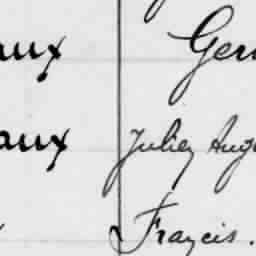 aux Ger
aux Julien Aug
Francis.